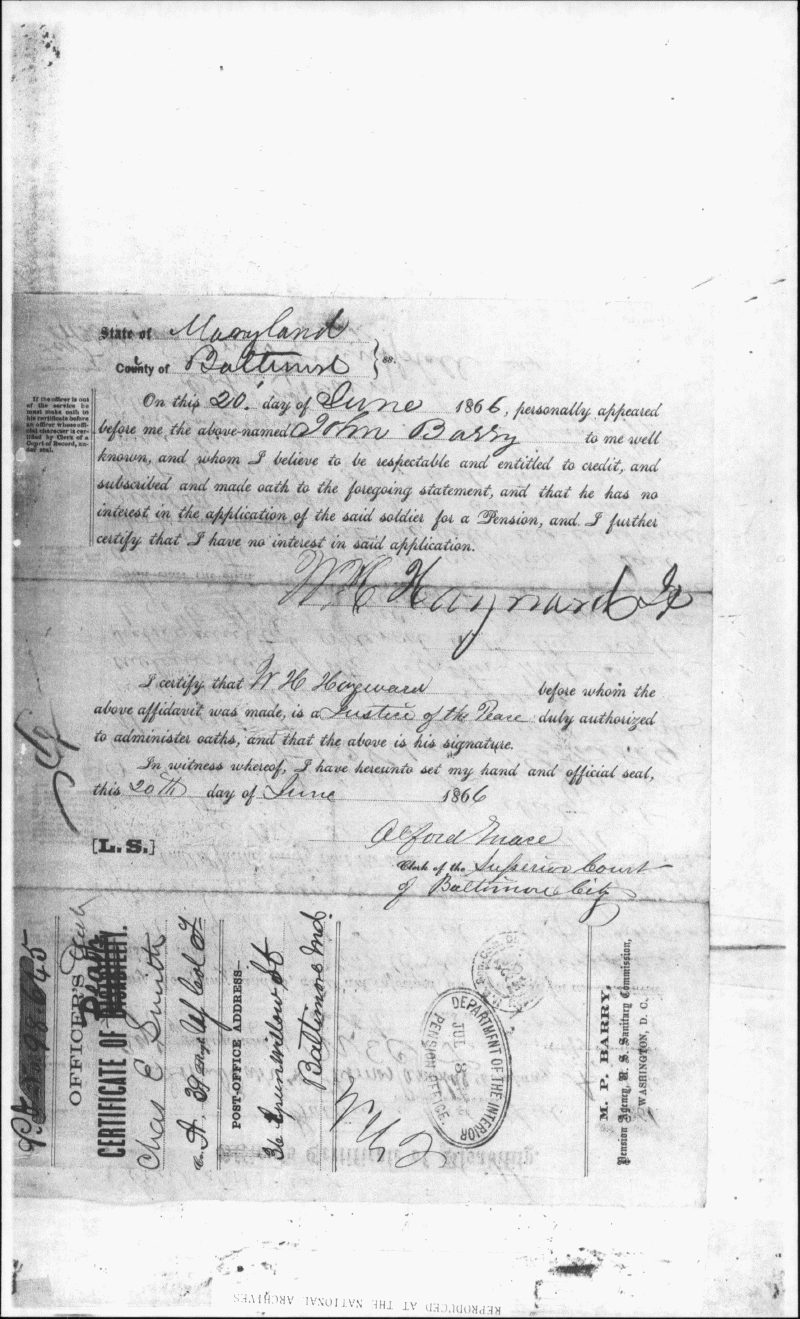 State of Maryland
County of Baltimore } ss.
If the officer is out
of the service he
must make oath to
his certificate before
an officer whose offi-
cial character is cer-
tified by Clerk of a
Court of Record, un-
der seal.
On this 20th day of June 1866, personally appeared
before me the above-named John Barry to me well
known, and whom I believe to be respectable and entitled to credit, and
subscribed and made oath to the foregoing statement, and that he has no
interest in the application of the said soldier for a Pension, and I further
certify that I have no interest in said application.
W H Hayward
I certify that W H Hayward before whom the
above affidavit was made, is a Justice of the Peace duly authorized
to administer oaths, and that the above is his signature.
In witness whereof, I have hereunto set my hand and official seal,
this 20th day of June 1866
[L. S.]
Alford Mace
Clerk of the Superior Court
of Baltimore City
No. 98.645
OFFICER'S
CERTIFICATE OF
Chas E Smith
Co. A, 39 Reg't U S Col I
POST-OFFICE ADDRESS—
36 Greenwillow St
Baltimore Md.
DEPARTMENT OF THE INTERIOR
JUL
PENSION OFFICE
M. P. BARRY,
Pension Agency, U. S. Sanitary Commission,
WASHINGTON, D. C.
REPRODUCED AT THE NATIONAL ARCHIVES